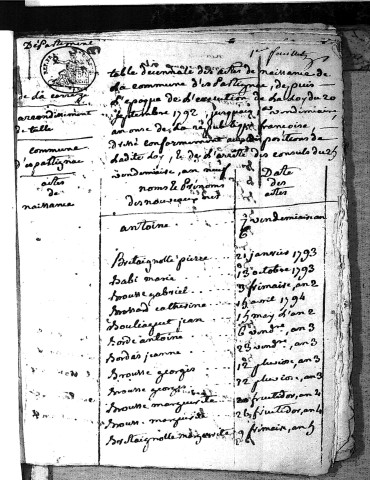 Département
1er feuillet
de la corrèze
arrondissement
de tulle
commune
d'espastignac
actes
de
naissance
table décennale des actes de naissance de
la commune d'espastignac, depuis
l'époque de l'exécution de la loy du 20
septembre 1792, jusqu'au 1er vendemiaire,
an onze de la république françoise,
dressé conformément aux dispositions de
ladite loy, et de l'arrêté des consuls du 25
vendemiaire, an neuf
noms et Prénoms
des nouveaux nés
Date
des
actes
antoine 7 vendemiaire an
6
Bretaignolle pierre 21 janvier 1793
Babi marie 13 octobre 1793
Brousse gabriel 3 frimaise, an 2
Brossard catherine 15 avril 1794
Bouliaguet jean 15 may d'an 2
Borde antoine 6 vendre, an 3
Bordas jeanne 28 vendre, an 3
Brousse georges 12 pluviose, an 3
Brousse georges 22 pluviose, an 3
Brousse marguerite 20 fructidor, an 3
Brousse marguerite 26 fructidor, an 4
Bretaignolle marguerite 9 frimaise, an 5